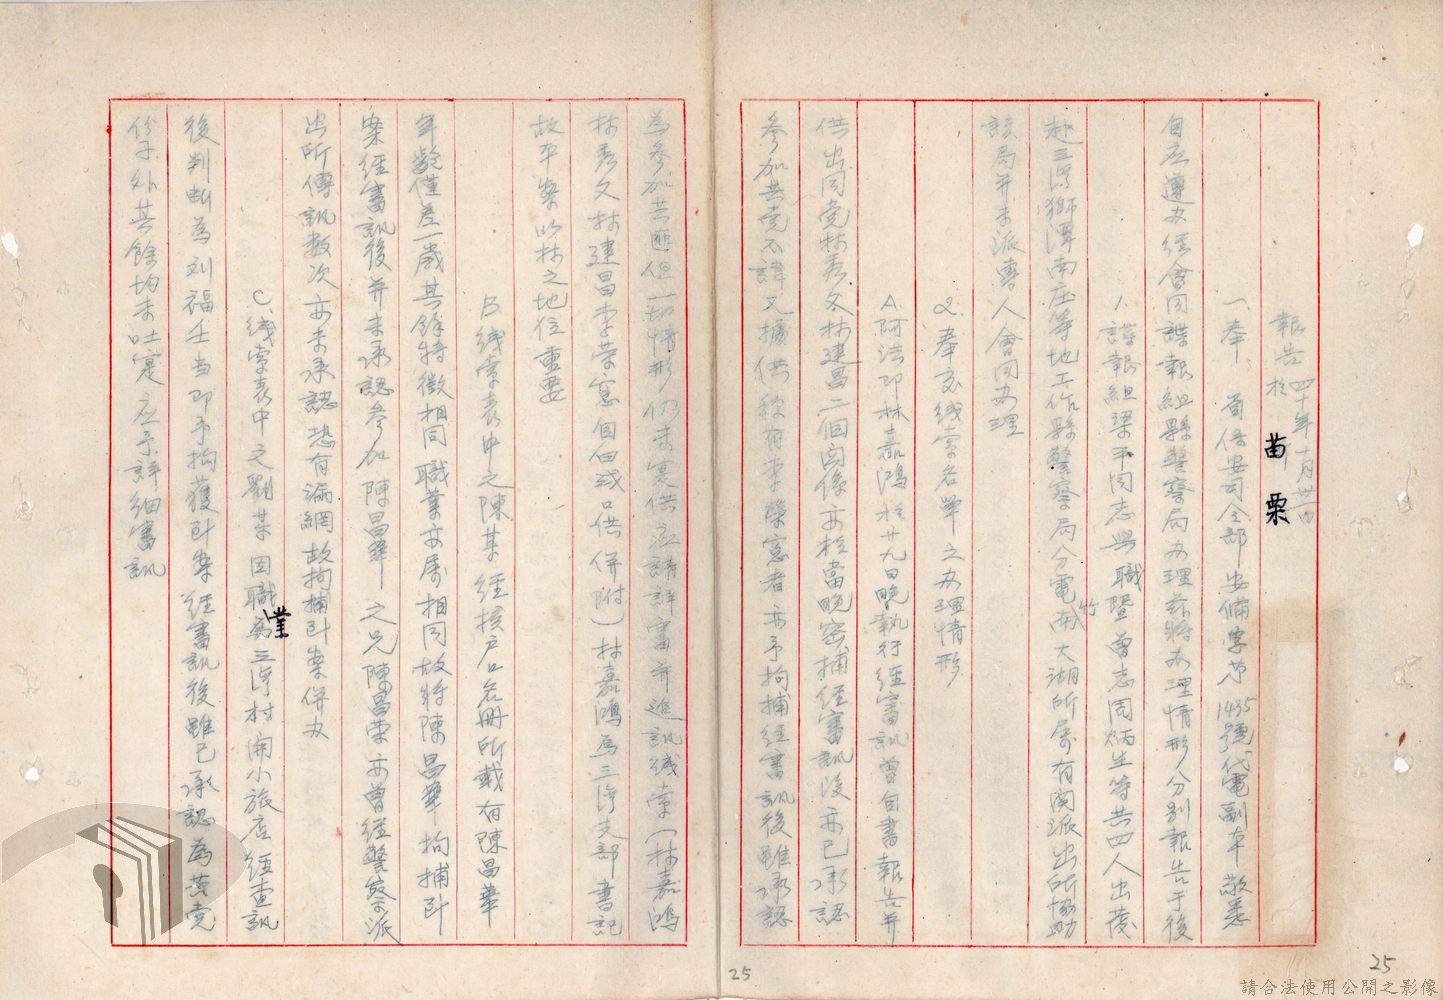 報告 四十年十月廿一日 於苗栗
一、奉 省保安司令部安備字第1435號代電副本敬悉
自應遵办經會同諜報組縣警察局办理茲將办理情形分別報告于後
1.諜報組梁不同志與職暨曾志周炳生等共四人出發
赴三湾獅潭南庄等地工作縣警察局分電南竹大湖所屬有関派出所協助
該局并未派專人會同办理
2.奉交线索名單之办理情形
A.阿法即林嘉鴻於廿九日晚執行經審訊曾自書報告并
供出同党林秀文林建昌二個関係亦於當晚密捕經審訊後亦已承認
參加共党不諱又據供称有李榮寔者亦予拘捕經審訊後雖承認
為參加共匪但一切情形仍未寔供应請詳審并進訊线索(林嘉鴻
林秀文林建昌李榮寔個田或口供併附)林嘉鴻為三湾支部書記
故本案以林之地位重要
B.线索表中之陳某經摸户口名册所載有陳昌華
年齡僅差一歲其餘特徵相同職業亦屬相同故將陳昌華拘捕到
案經審訊後并未承認參加陳昌華之兄陳昌榮亦曾經警察派
出所傳訊数次亦未承認恐有漏網故拘捕到案併办
C.线索表中之劉某因職業為三湾村開小旅店經查訊
後判断為刘福壬当即予拘獲到案經審訊後雖已承認為共党
份子外其餘均未吐寔应予詳細審訊
25
25
請合法使用公開之影像